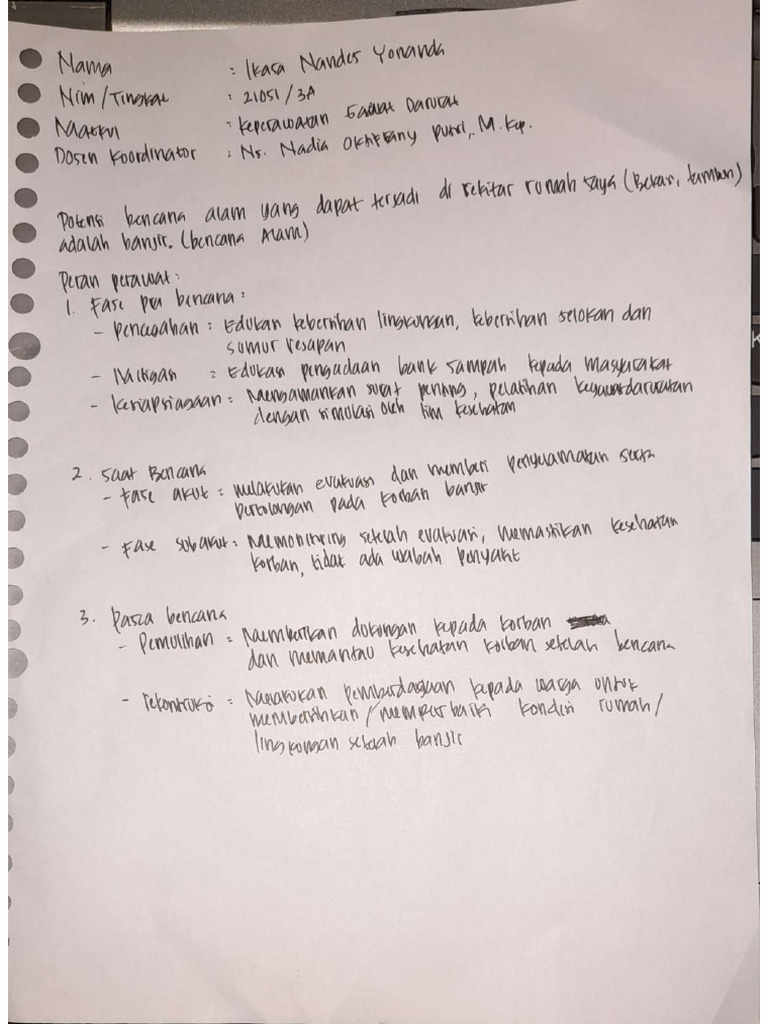 Nama : Ikasa Nandes Yonanda
Nim/Tingkat : 21051/3A
Matkul : Keperawatan Gawat Darurat
Dosen Koordinator : Ns. Nadia Oktiffany Putri, M.Kep.
Potensi bencana alam yang dapat terjadi di sekitar rumah saya (Bekasi, tambun)
adalah banjir. (bencana Alam)
Peran perawat :
1. Fase pra bencana :
- Pencegahan : Edukasi kebersihan lingkungan, kebersihan selokan dan
sumur resapan
- Mitigasi : Edukasi pengadaan bank sampah kepada masyarakat
- Kesiapsiagaan : Mengamankan surat penting, pelatihan kegawatdaruratan
dengan simulasi oleh tim kesehatan
2. Saat Bencana
- Fase akut : melakukan evakuasi dan memberi penyelamatan serta
pertolongan pada korban banjir
- Fase subakut : Memonitoring setelah evakuasi, memastikan kesehatan
korban, tidak ada wabah penyakit
3. Pasca bencana
- Pemulihan : Memberikan dukungan kepada korban
dan memantau kesehatan korban setelah bencana
- rekontruksi : Melakukan pemberdayaan kepada warga untuk
membersihkan/memperbaiki kondisi rumah/
lingkungan setelah banjir